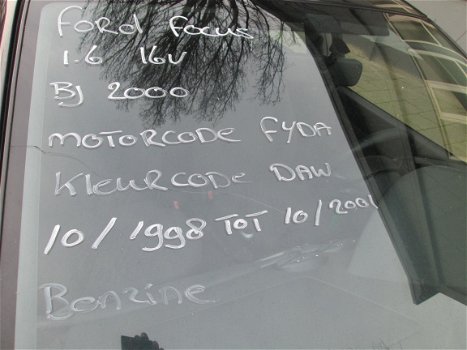 FORD FOCUS
1.6 16V
BJ 2000
MOTORCODE FYDA
KLEURCODE DAW
10/1998 TOT 10/2001
Benzine